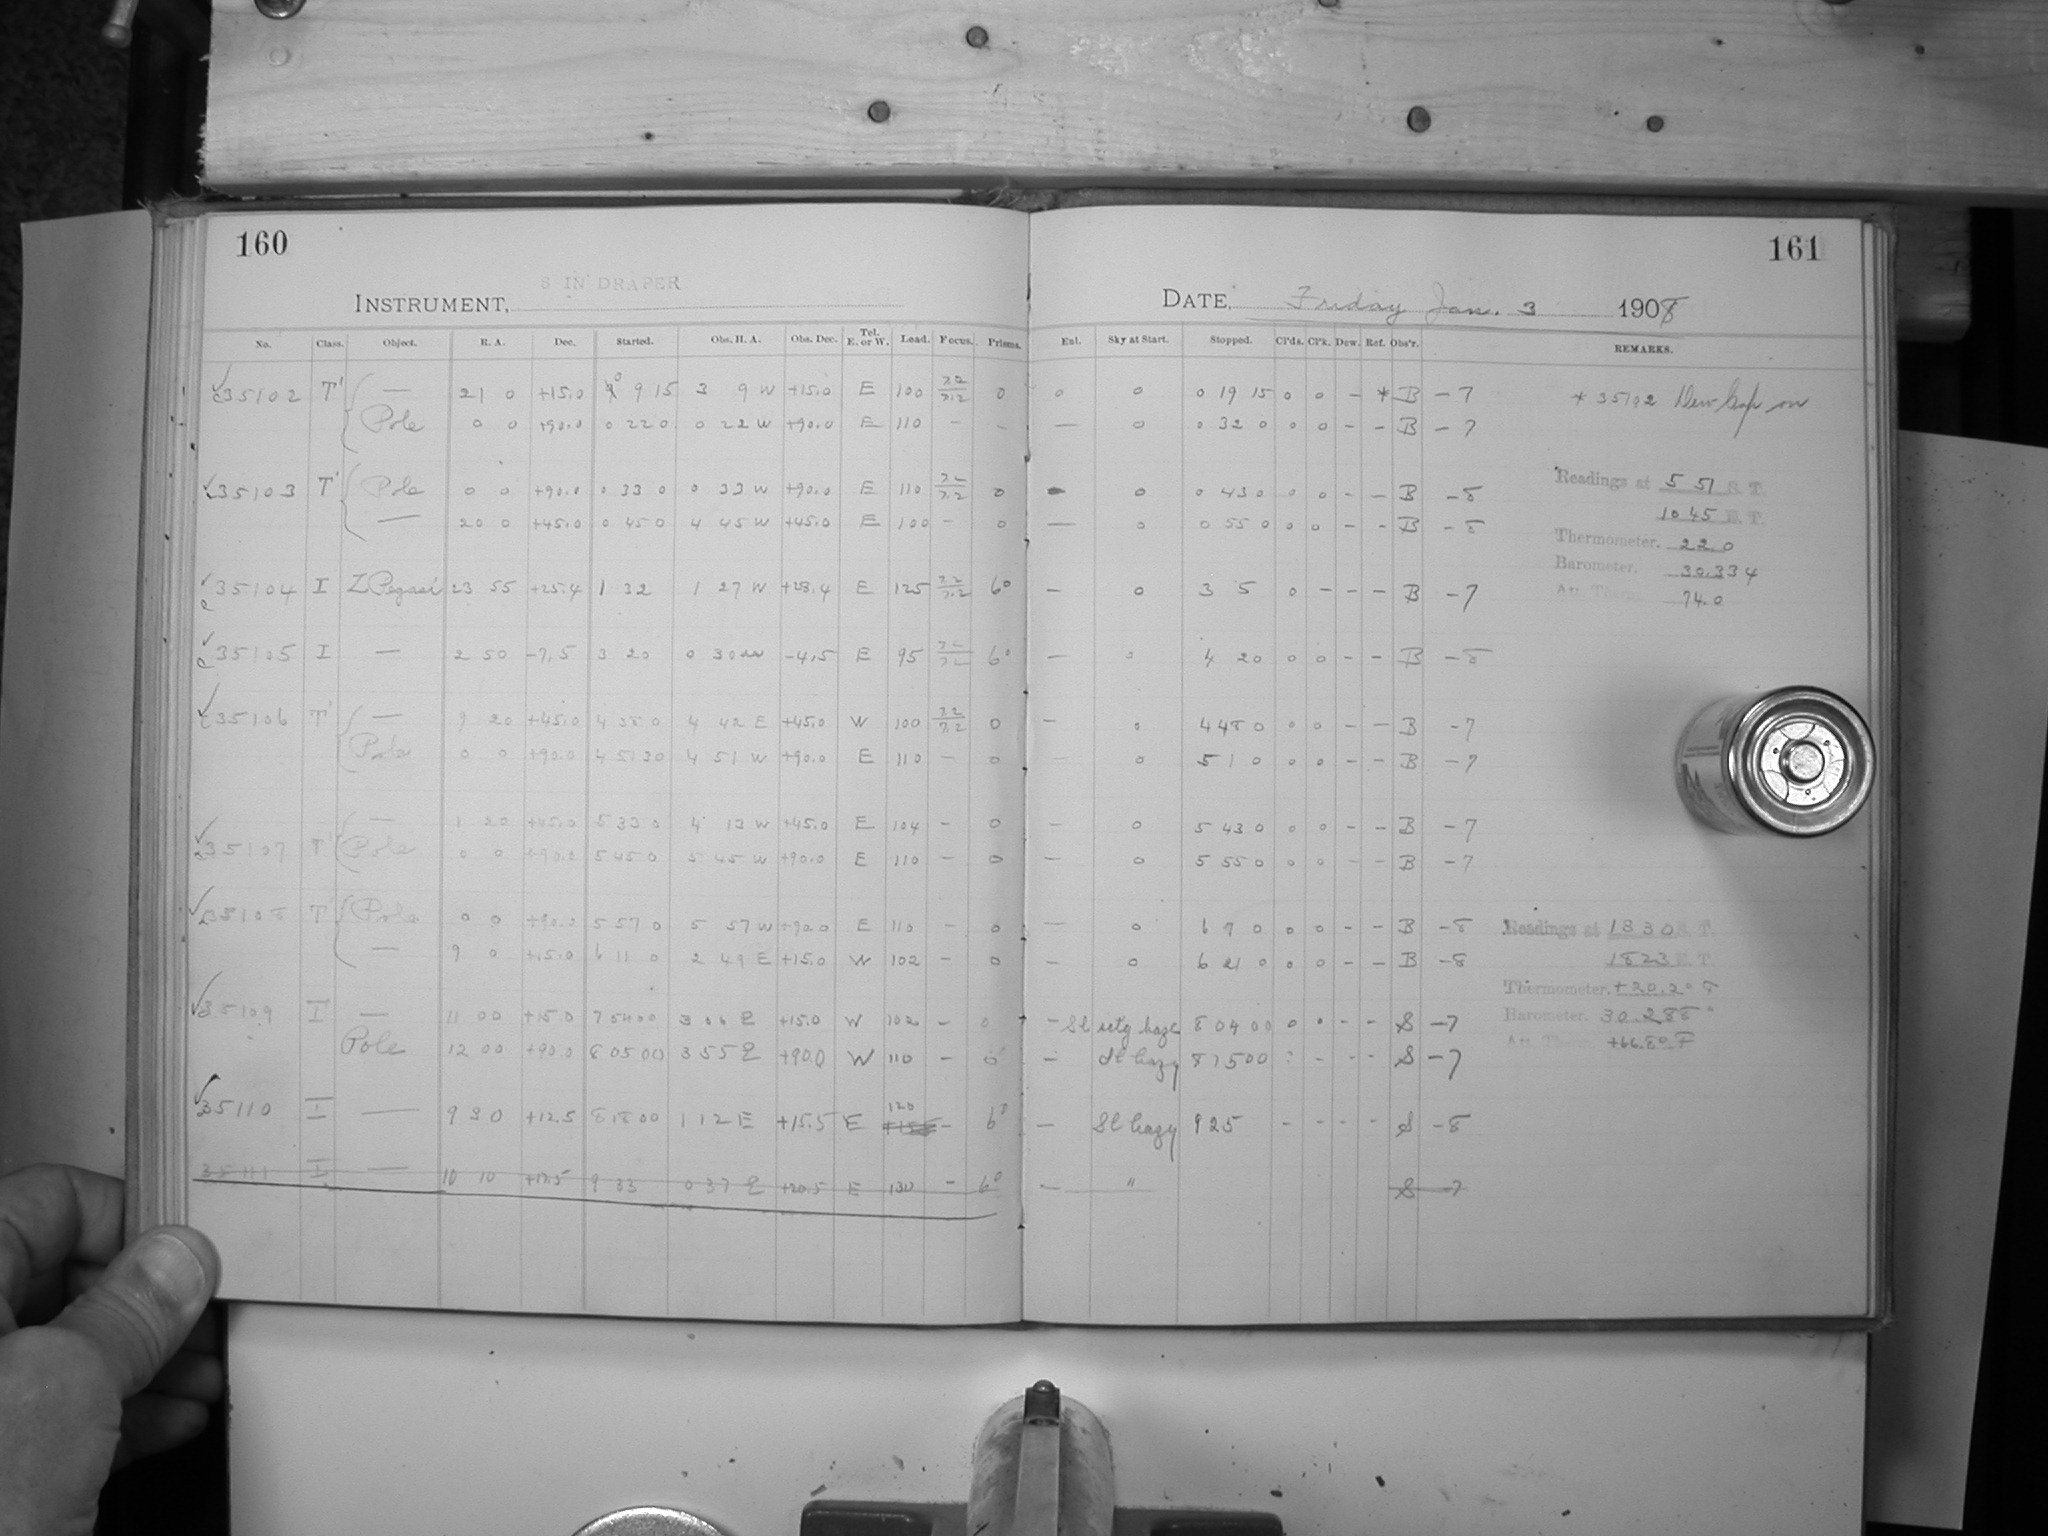 160
161
8 IN DRAPER
INSTRUMENT,
DATE, Friday Jan. 3 1908
No. Class. Object. R. A. Dec. Started. Obs. H. A. Obs. Dec. Tel. E. or W. Load. Focus. Prisms. Enl. Sky at Start. Stopped. Cl'ds. Cl'k. Dew. Ref. Obs'r. REMARKS.
35102 T' — 21 0 +15.0 0 9 15 3 9 W +15.0 E 100 7.2/7.2 0 0 0 0 19 15 0 0 - * B - 7 * 35102
Pole 0 0 +90.0 0 22 0 0 22 W +90.0 E 110 - - — 0 0 32 0 0 0 - - B - 7
35103 T' Pole 0 0 +90.0 0 33 0 0 33 W +90.0 E 110 7.2/7.2 0 - 0 0 43 0 0 0 - - B - 8
— 20 0 +45.0 0 45 0 4 45 W +45.0 E 100 - 0 — 0 0 55 0 0 0 - - B - 8
Readings at 5 51 S. T.
10 45 E. T.
Thermometer. 22.0
Barometer. 30.334
Att. Therm. 74.0
35104 I Z Pegasi 23 55 +25.4 1 32 1 27 W +28.4 E 125 7.2/7.2 6° - 0 3 5 0 - - - B - 7
35105 I — 2 50 -7.5 3 20 0 30 W -4.5 E 95 7.2/7.2 6° — 0 4 20 0 0 - - B - 8
35106 T' — 9 20 +45.0 4 38 0 4 42 E +45.0 W 100 7.2/7.2 0 - 0 4 48 0 0 0 - - B - 7
Pole 0 0 +90.0 4 51 30 4 51 W +90.0 E 110 - 0 - 0 5 1 0 0 0 - - B - 7
— 1 20 +45.0 5 33 0 4 13 W +45.0 E 104 - 0 - 0 5 43 0 0 0 - - B - 7
35107 T' Pole 0 0 +90.0 5 45 0 5 45 W +90.0 E 110 - 0 - 0 5 55 0 0 0 - - B - 7
35108 T' Pole 0 0 +90.0 5 57 0 5 57 W +90.0 E 110 - 0 - 0 6 7 0 0 0 - - B - 8
— 9 0 +15.0 6 11 0 2 49 E +15.0 W 102 - 0 - 0 6 21 0 0 0 - - B - 8
Readings at 18 30 S. T.
18 23 E. T.
Thermometer. +20.2° F
Barometer. 30.288"
Att. Therm. +66.8° F
35109 I — 11 00 +15.0 7 54 00 3 06 E +15.0 W 102 - 0 - Sl haze 8 04 00 0 0 - - S - 7
Pole 12 00 +90.0 8 05 00 3 55 E +90.0 W 110 - 0 - Sl hazy 8 15 00 - - - S - 7
35110 I — 9 30 +12.5 8 18 00 1 12 E +15.5 E 120 - 6° - Sl hazy 9 25 - - - - S - 8
35111 I — 10 10 +17.5 9 33 0 37 E +20.5 E 130 - 6° - " S - 7